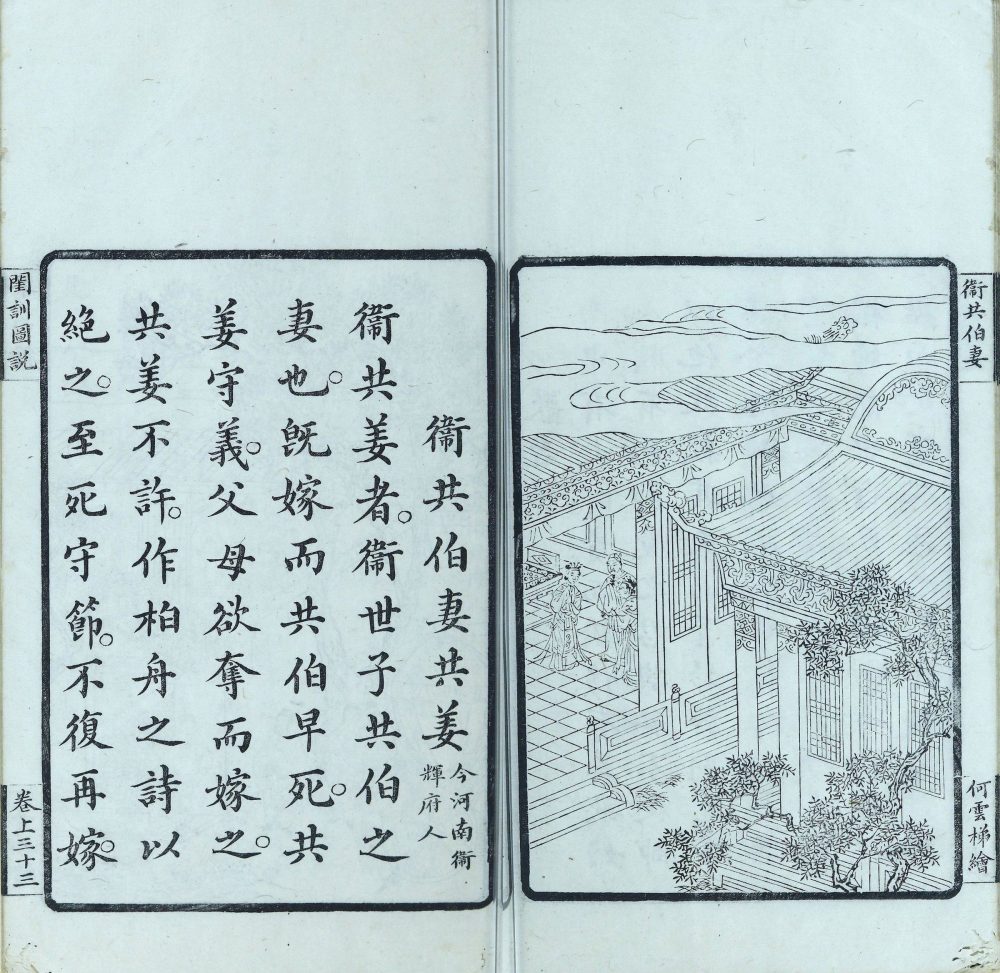 衞共伯妻
何雲梯繪
衞共伯妻共姜今河南衞
輝府人
衞共姜者。衞世子共伯之
妻也。旣嫁而共伯早死。共
姜守義。父母欲奪而嫁之。
共姜不許。作柏舟之詩以
絶之。至死守節。不復再嫁。
閨訓圖説
卷上三十三